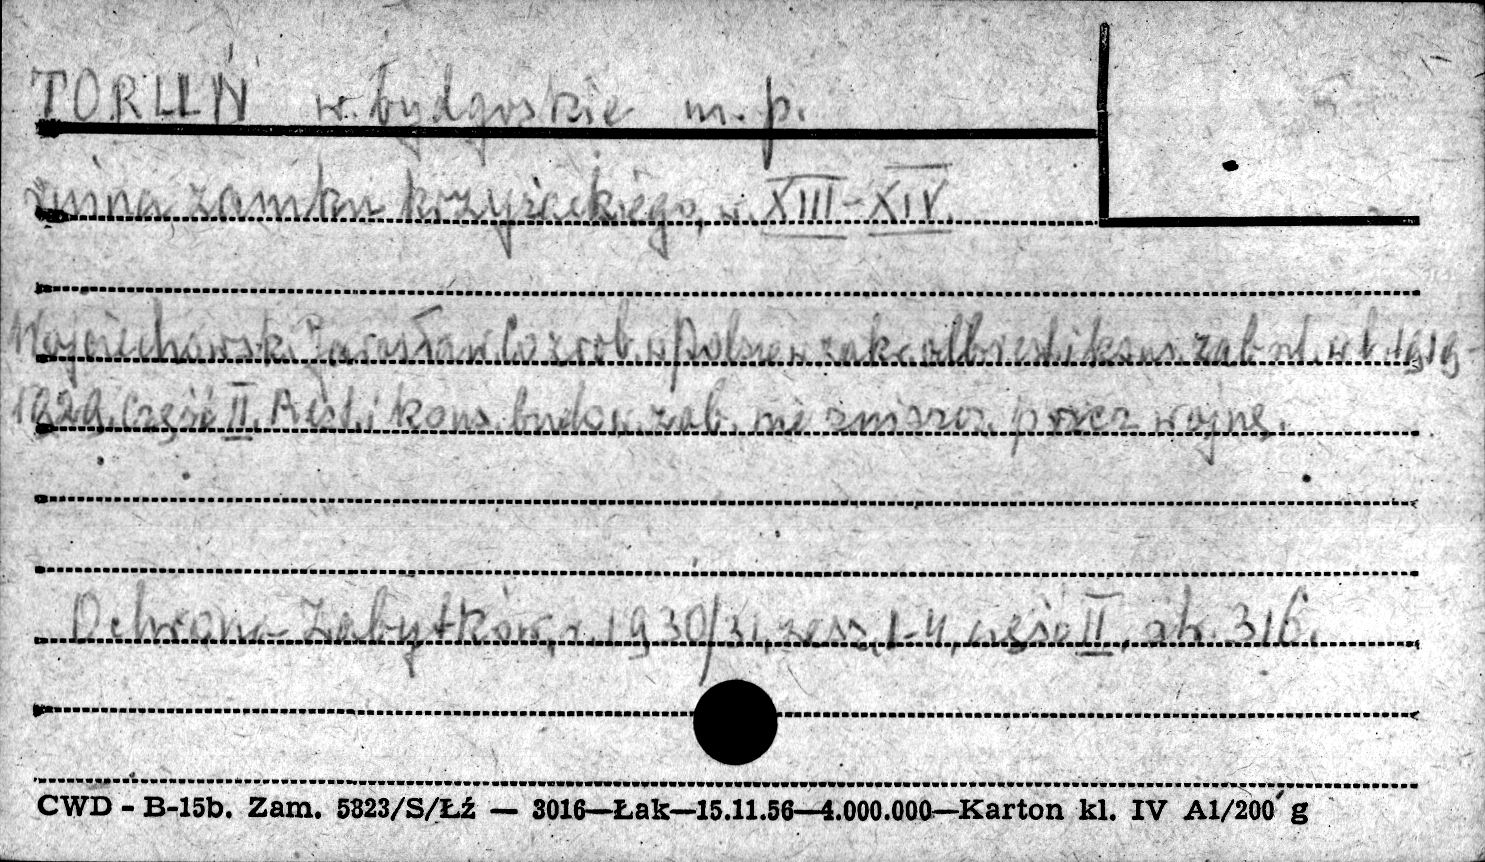 TORUŃ w. bydgoskie m. p.
ruina zamku krzyżackiego, w. XIII-XIV.
Wojciechowski Jarosław Co zrob. w Polsce w zakr. odb. rest. i kons. zab. od. w l. 1919-
1929. Część II. Rest. i kons. budow. zab. nie zniszcz. przez wojnę.
Ochrona Zabytków, r. 1930/31, zesz. 1-4, część II, str. 316.
CWD - B-15b. Zam. 5823/S/Łź — 3016—Łak—15.11.56—4.000.000—Karton kl. IV A1/200 g